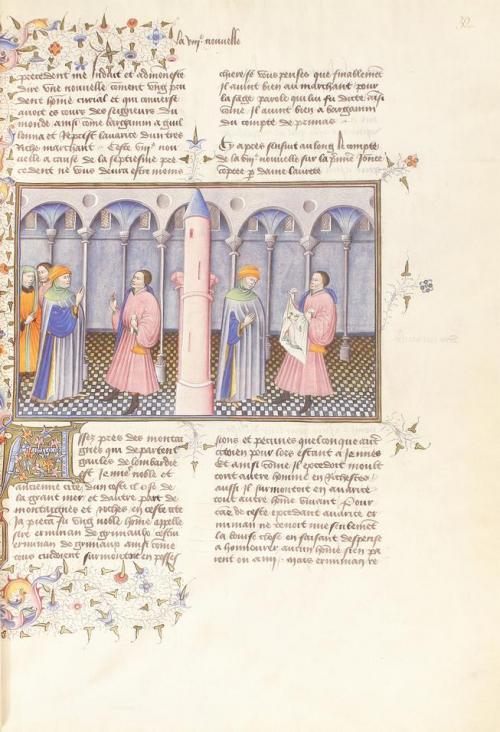 30
la viiie nouvelle
precedent me induit et admoneste
dire une nouvelle coment ung pru
dent home curial et qui converse
avoit es cours des seigneurs du
monde ainsi come bargamin a guil
loma et reprist lavarice dun tres
riche marchant Ceste nou
velle a cause de la septiesme pre
cedent ne vous devra estre moins
chere se vous pensez que finablement
il avint bien au marchant pour
la sage parole qui lui fu dicte ainsi
come il avint bien a bargamin
du compte de primas
Cy apres sensuit au long le compte
de la viiie nouvelle sur la premiere Jornee
comptee par dame laurete
Assez pres des montai
gnes qui departent
gaules de lombardie
est Jennes noble et
ancienne cite dun coste close de
la grant mer et dautre part de
montaignes et roches en ceste cite
Ja pieca fu ung noble home appelle
sire erminan de grimauls cestui
erminan de grimaus ainsi come
tous cuidoient surmontoit en posses
sions et pecunes quelconque autre
citoien pour lors estant a Jennes
et ainsi come il excedoit moult
tout autre home en richesses
aussi il surmontoit en avarice
tout autre home vivant Pour
car de ceste excedant avarice er
minan ne tenoit mie seulement
la bourse close en faisant despense
a honnourer aucun home sien pa
rent ou ami mais erminan te